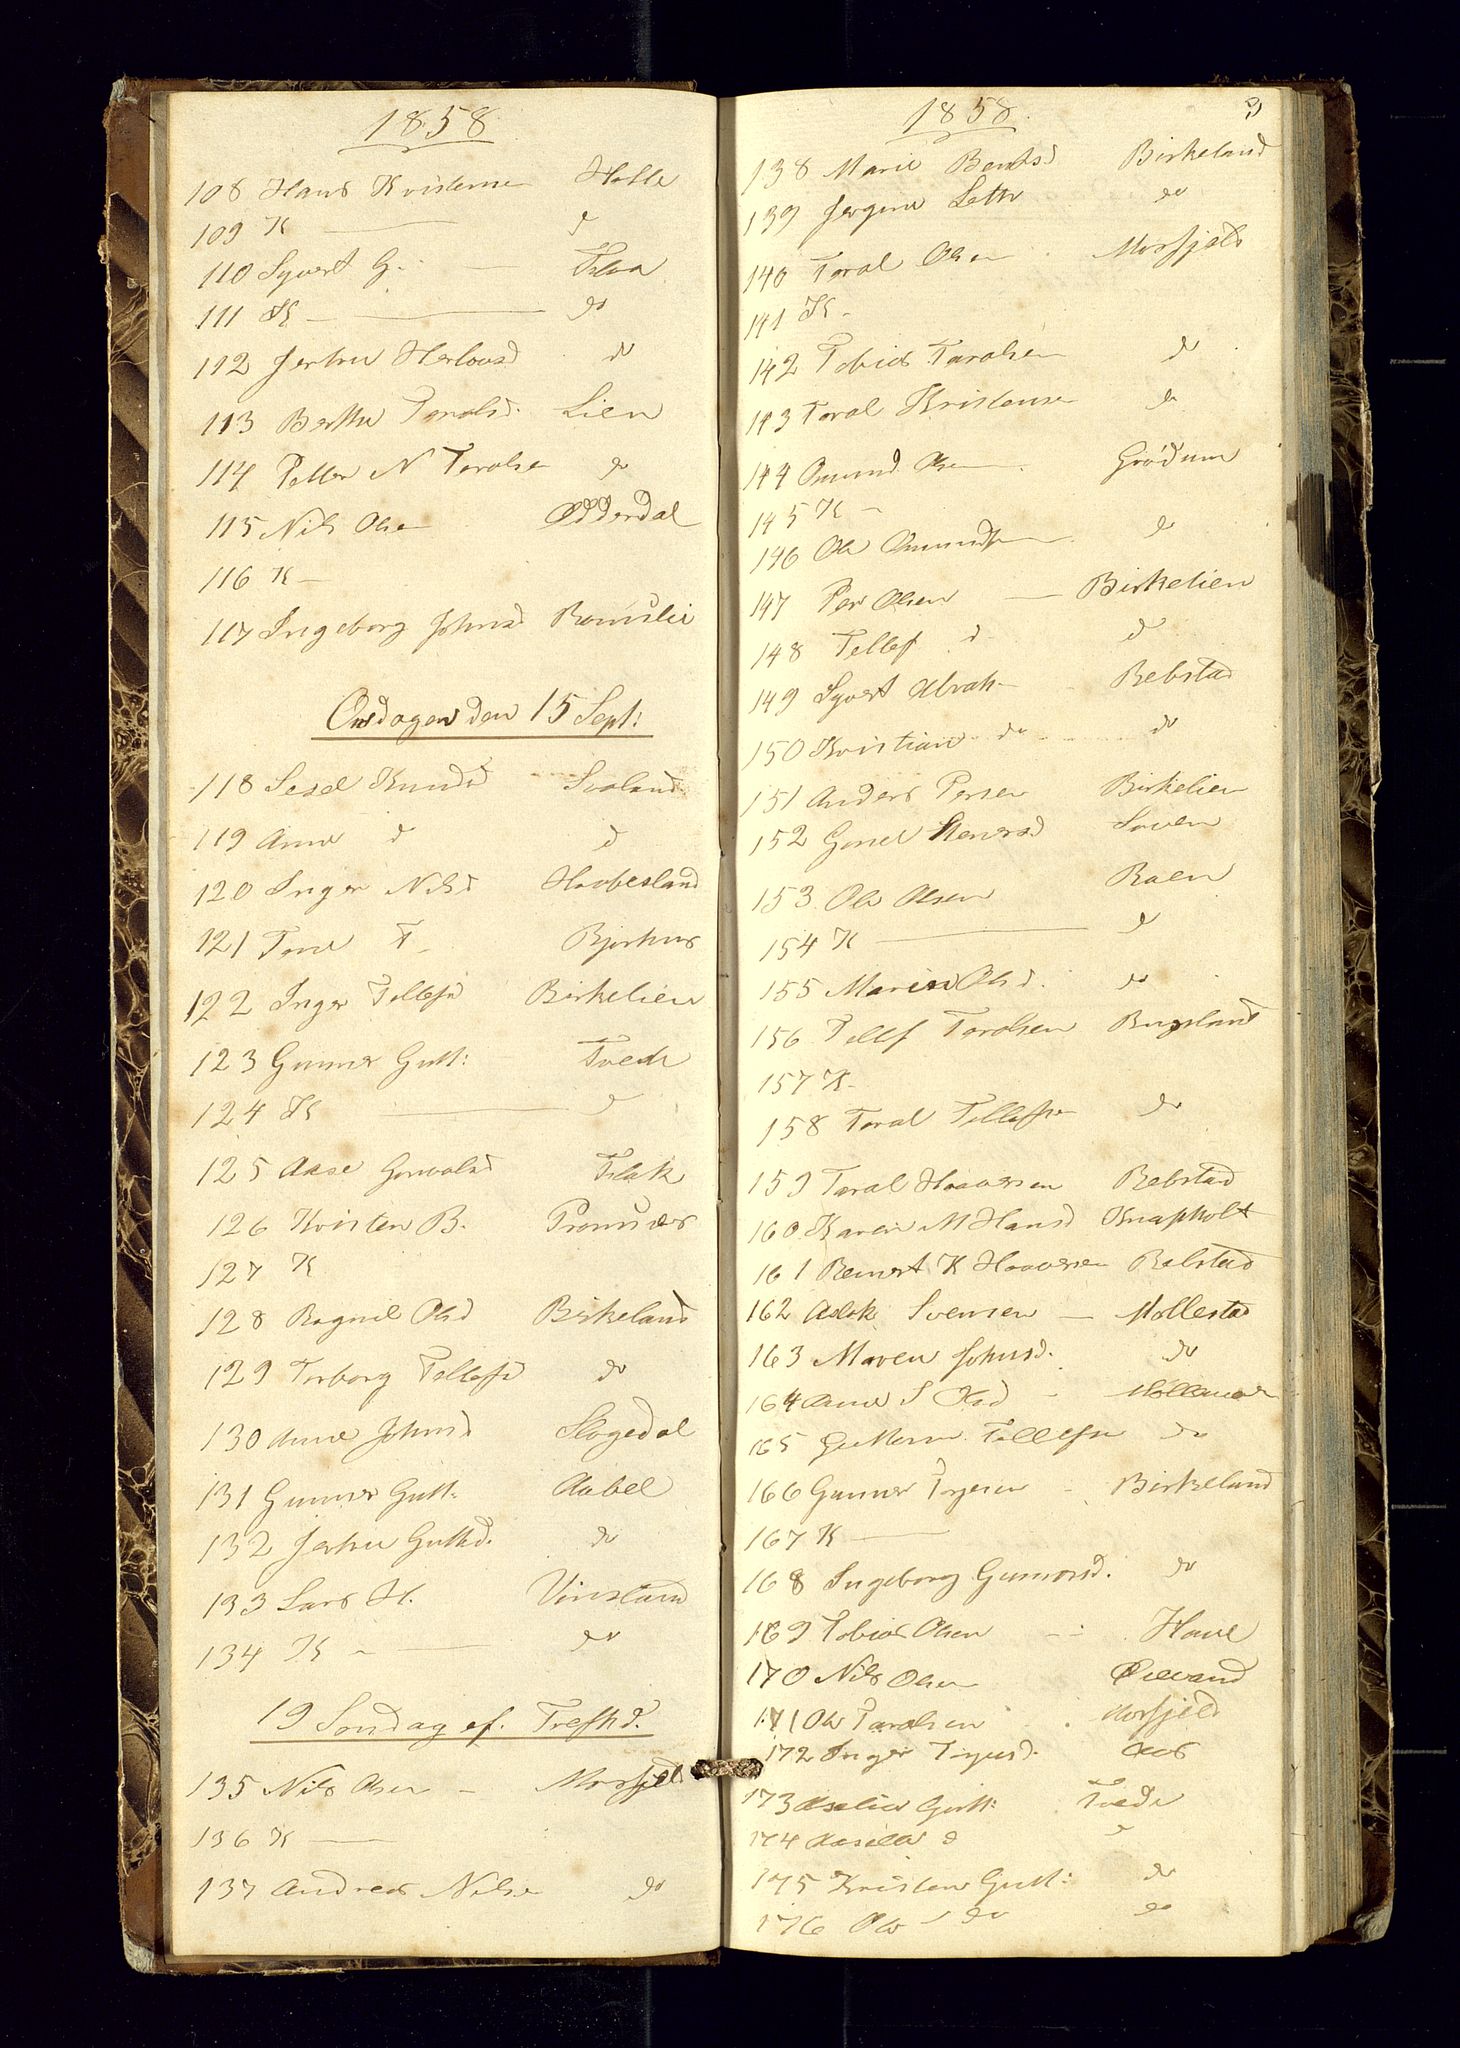 1858
108 Hans Kristense Holle
109 K — d
110 Syvert G. — Flaa
111 K — do
112 Jertru Herlovsd do
113 Berthe Taralsd. Lien
114 Petter N Taralse do
115 Nils Olse Odderdal
116 K —
117 Ingeborg Johnsd
Onsdagen den 15 Sept:
118 Sesel Knudsd Svaland
119 Anne d d
120 Inger Nilsd Haabesland
121 Tone T. Bjorhus
122 Inger Tellefsd Birkelien
123 Gunner Gutt: Tvede
124 K — d
125 Aase Gunvalsd Flak
126 Kristen B.
127 K
128 Ragnil Olsd Birkeland
129 Torborg Tellefsd do
130 Anne Johnsd Slogedal
131 Gunner Gutt. Aabel
132 Jertru Guttd. do
133 Lars H. Vinsland
134 K — do
19 Sondag ef. Trefhd.
135 Nils Olsen — Mosfjeld
136 K —
137 Andreas Nilse do
1858. 3
138 Marie Bentsd Birkeland
139 Jorgine Lett do
140 Taral Olsen Mosfjeld
141 K -
142 Tobias Taralsen do
143 Taral Kristense do
144 Omund Olsen Grødum
145 K —
146 Ole Omundsen do
147 Per Olsen — Birkelien
148 Tellef d d
149 Syvert Abrah- Rebstad
150 Kristian do do
151 Anders Persen Birkelien
152 Gonel Stenersd Loven
153 Ole Olsen Raen
154 K — d
155 Maren Olsd. do
156 Tellf Taralsen Bugeland
157 K -
158 Taral Tellefse do
159 Taral Haaversen Rebstad
160 Karen M Hansd Knapholt
161 Reinert K Haaversen Rebstad
162 Aslak Svensen — Mollestad
163 Maren Johnsd. do
164 Anne S Olsd -
165 Guttorm Tellefse do
166 Gunner Torjesen - Birkeland
167 K —
168 Ingeborg Gunnersd. do
169 Tobias Olsen — Have
170 Nils Olsen
171 Ole Taralsen Mosfjeld
172 Inger Terjesd. Aas
173 Aselie Gutt: Tvede
174 Aasille d d
175 Kristen Gutt: do
176 Ole - do do